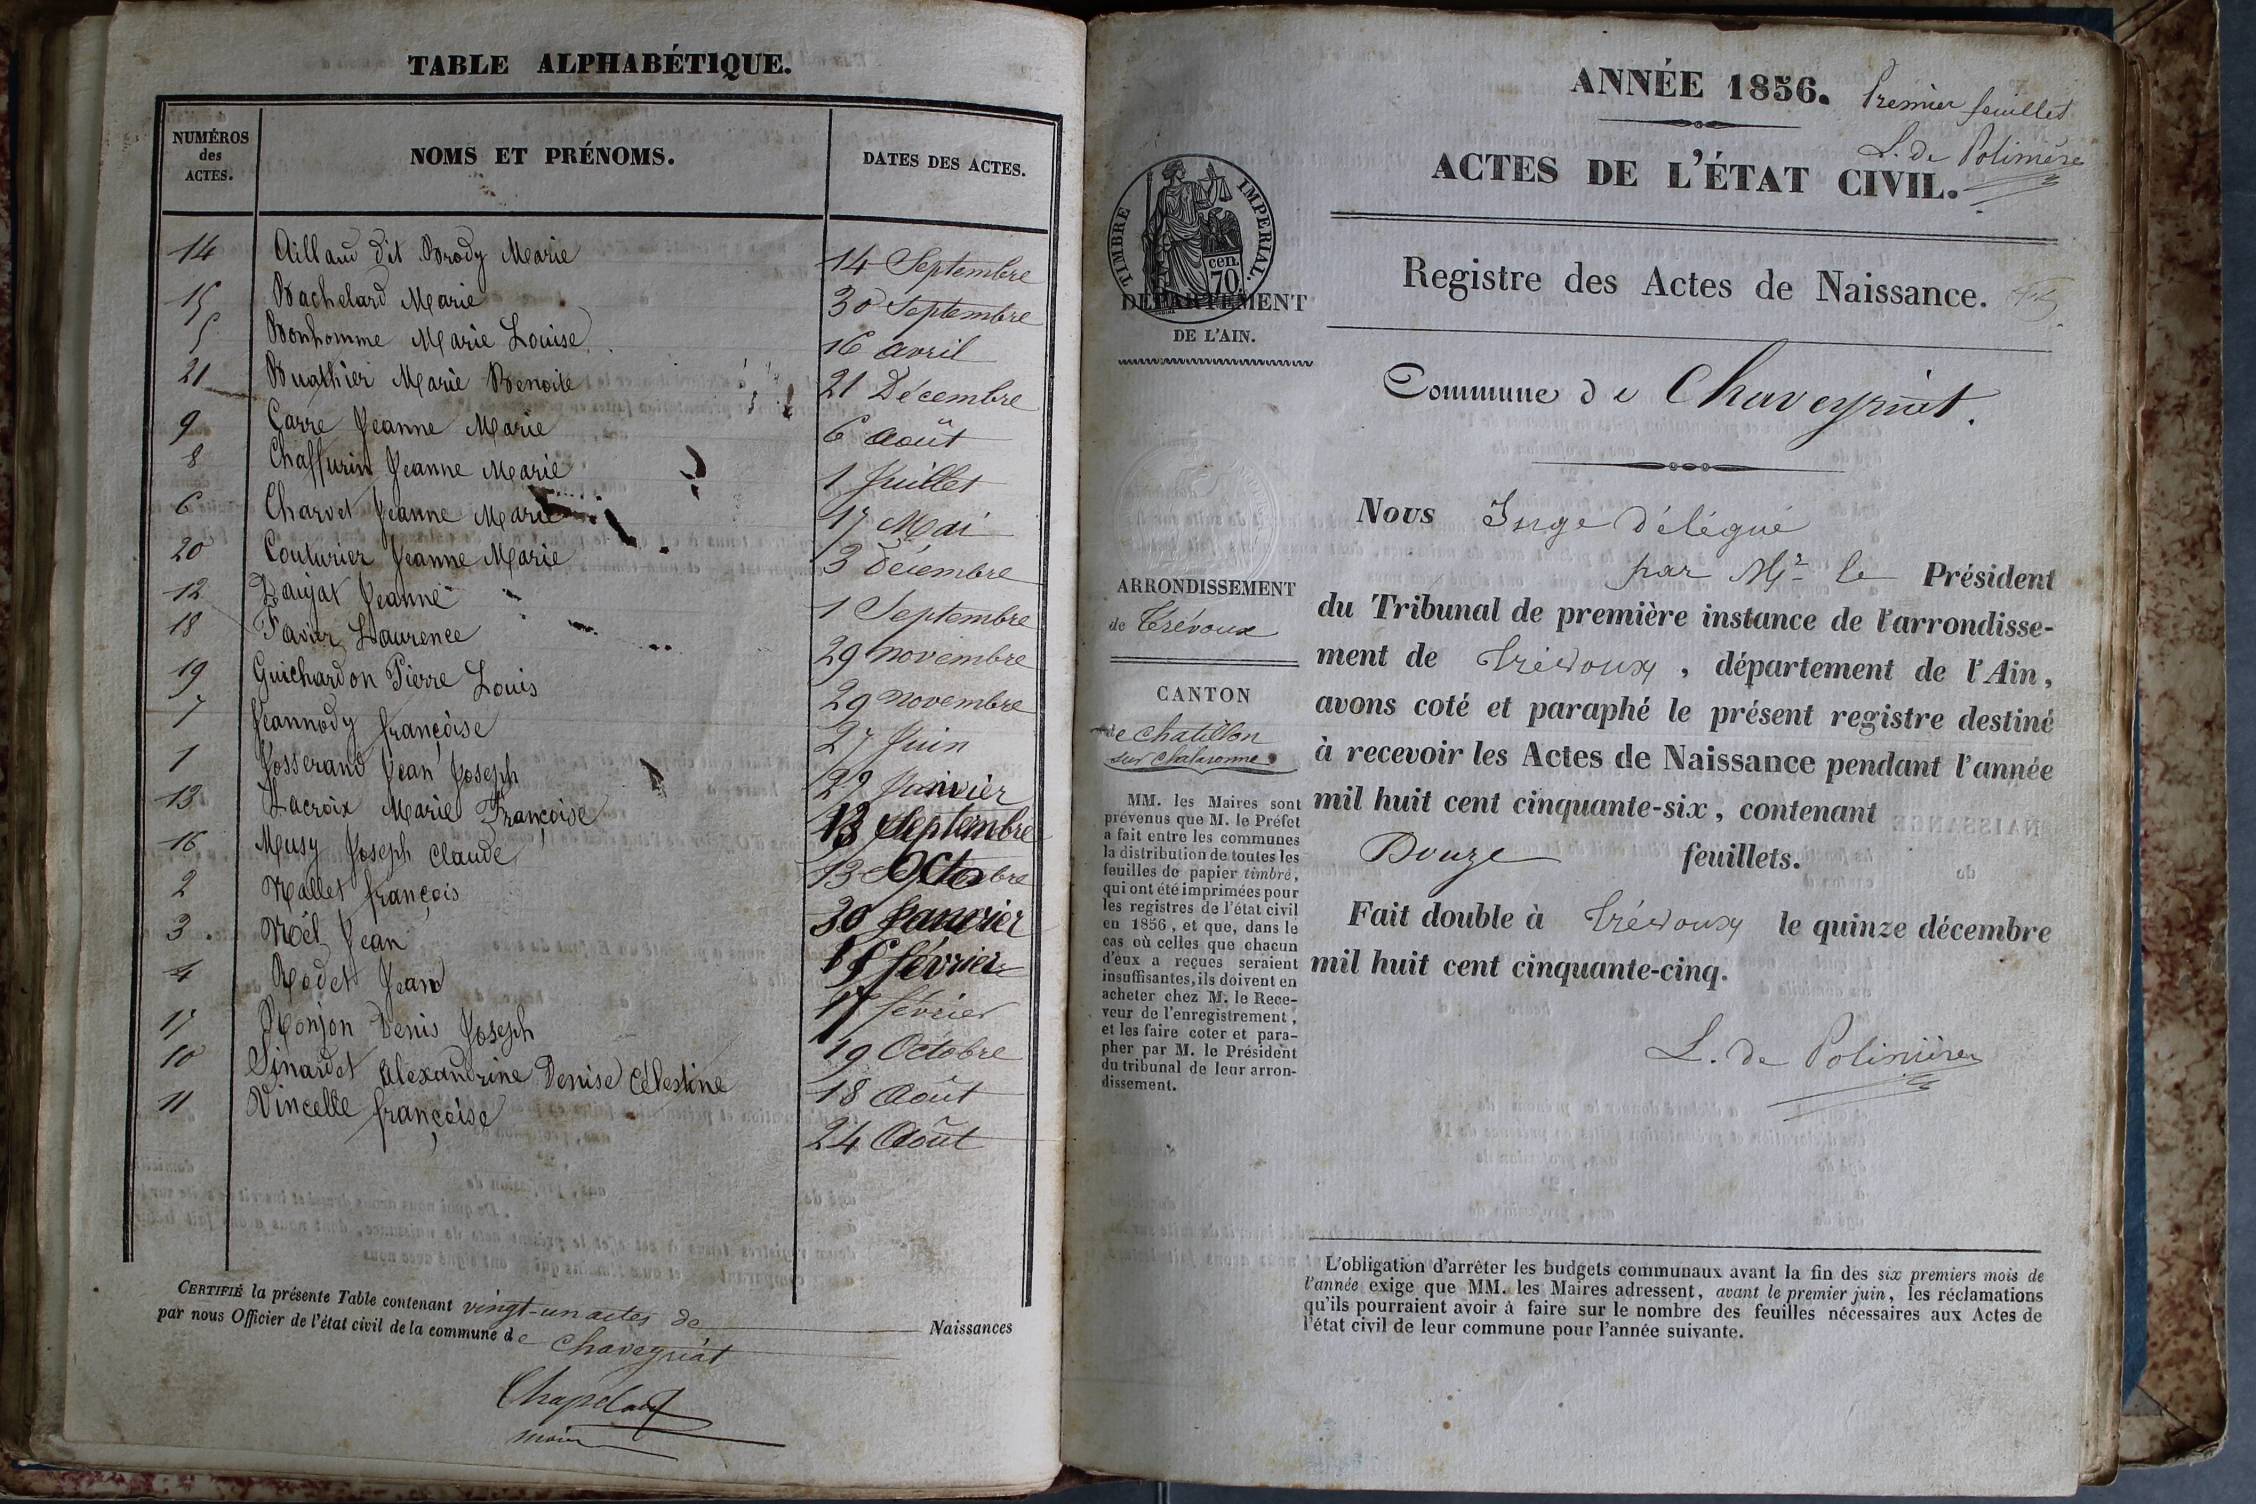 TABLE ALPHABÉTIQUE.
NUMÉROS des ACTES. NOMS ET PRÉNOMS. DATES DES ACTES.
14 Aillaud dit Brody Marie 14 Septembre
15 Bachelard Marie 30 Septembre
5 Bonhomme Marie Louise 16 avril
21 Buathier Marie Benoite 21 Décembre
9 Carre Jeanne Marie 6 Août
8 Chaffurin Jeanne Marie 1 Juillet
6 Charvet Jeanne Marie 17 Mai
20 Couturier Jeanne Marie 3 Décembre
12 Daigat Jeanne 1 Septembre
18 Favier Laurence 29 novembre
19 Guichardon Pierre Louis 29 novembre
7 Jeannody françoise 27 Juin
1 Josserand Jean Joseph 29 Janvier
13 Lacroix Marie Françoise 13 Septembre
16 Musy Joseph Claude 13 Octobre
2 Nallet françois 30 Janvier
3 Noël Jean 15 février
4 Rodet Jean 17 février
17 Ronjon Denis Joseph 19 Octobre
10 Sinardet Alexandrine Denise Célestine 18 Août
11 Vincelle françoise 24 Août
CERTIFIÉ la présente Table contenant vingt-un actes de Naissances
par nous Officier de l'état civil de la commune de Chaveyriat
maire
ANNÉE 1856. Premier feuillet
L. de Polinière
ACTES DE L'ÉTAT CIVIL.
TIMBRE IMPERIAL.
cen.
70
DÉPARTEMENT
DE L'AIN.
Registre des Actes de Naissance.
Commune de Chaveyriat.
ARRONDISSEMENT
de Trévoux
CANTON
de Chatillon
sur Chalaronne
MM. les Maires sont
prévenus que M. le Préfet
a fait entre les communes
la distribution de toutes les
feuilles de papier timbré,
qui ont été imprimées pour
les registres de l'état civil
en 1856, et que, dans le
cas où celles que chacun
d'eux a reçues seraient
insuffisantes, ils doivent en
acheter chez M. le Rece-
veur de l'enregistrement,
et les faire coter et para-
pher par M. le Président
du tribunal de leur arron-
dissement.
Nous Juge délégué
par Mr le Président
du Tribunal de première instance de l'arrondisse-
ment de Trévoux, département de l'Ain,
avons coté et paraphé le présent registre destiné
à recevoir les Actes de Naissance pendant l'année
mil huit cent cinquante-six, contenant
Douze feuillets.
Fait double à Trévoux le quinze décembre
mil huit cent cinquante-cinq.
L. de Polinière
L'obligation d'arrêter les budgets communaux avant la fin des six premiers mois de
l'année exige que MM. les Maires adressent, avant le premier juin, les réclamations
qu'ils pourraient avoir à faire sur le nombre des feuilles nécessaires aux Actes de
l'état civil de leur commune pour l'année suivante.